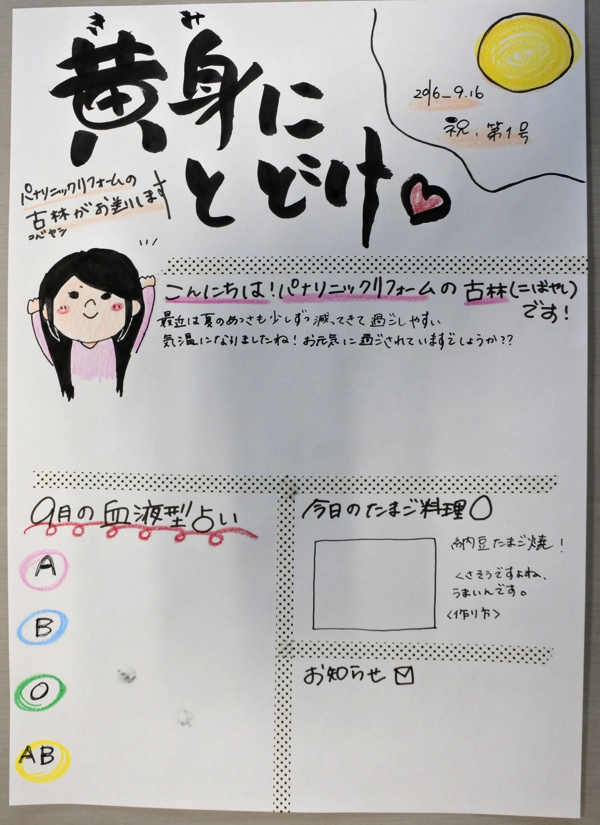 きみ
黄身に
とどけ
2016_9.16
祝、第1号
パナソニックリフォームの
古林がお送りします
コバヤシ
こんにちは!パナソニックリフォームの古林(こばやし)
です!
最近は夏のあつさも少しずつ減ってきて過ごしやすい
気温になりましたね!お元気に過ごされていますでしょうか??
9月の血液型占い
A
B
O
AB
今日のたまご料理
納豆たまご焼!
くさそうですよね、
うまいんです。
<作り方>
お知らせ